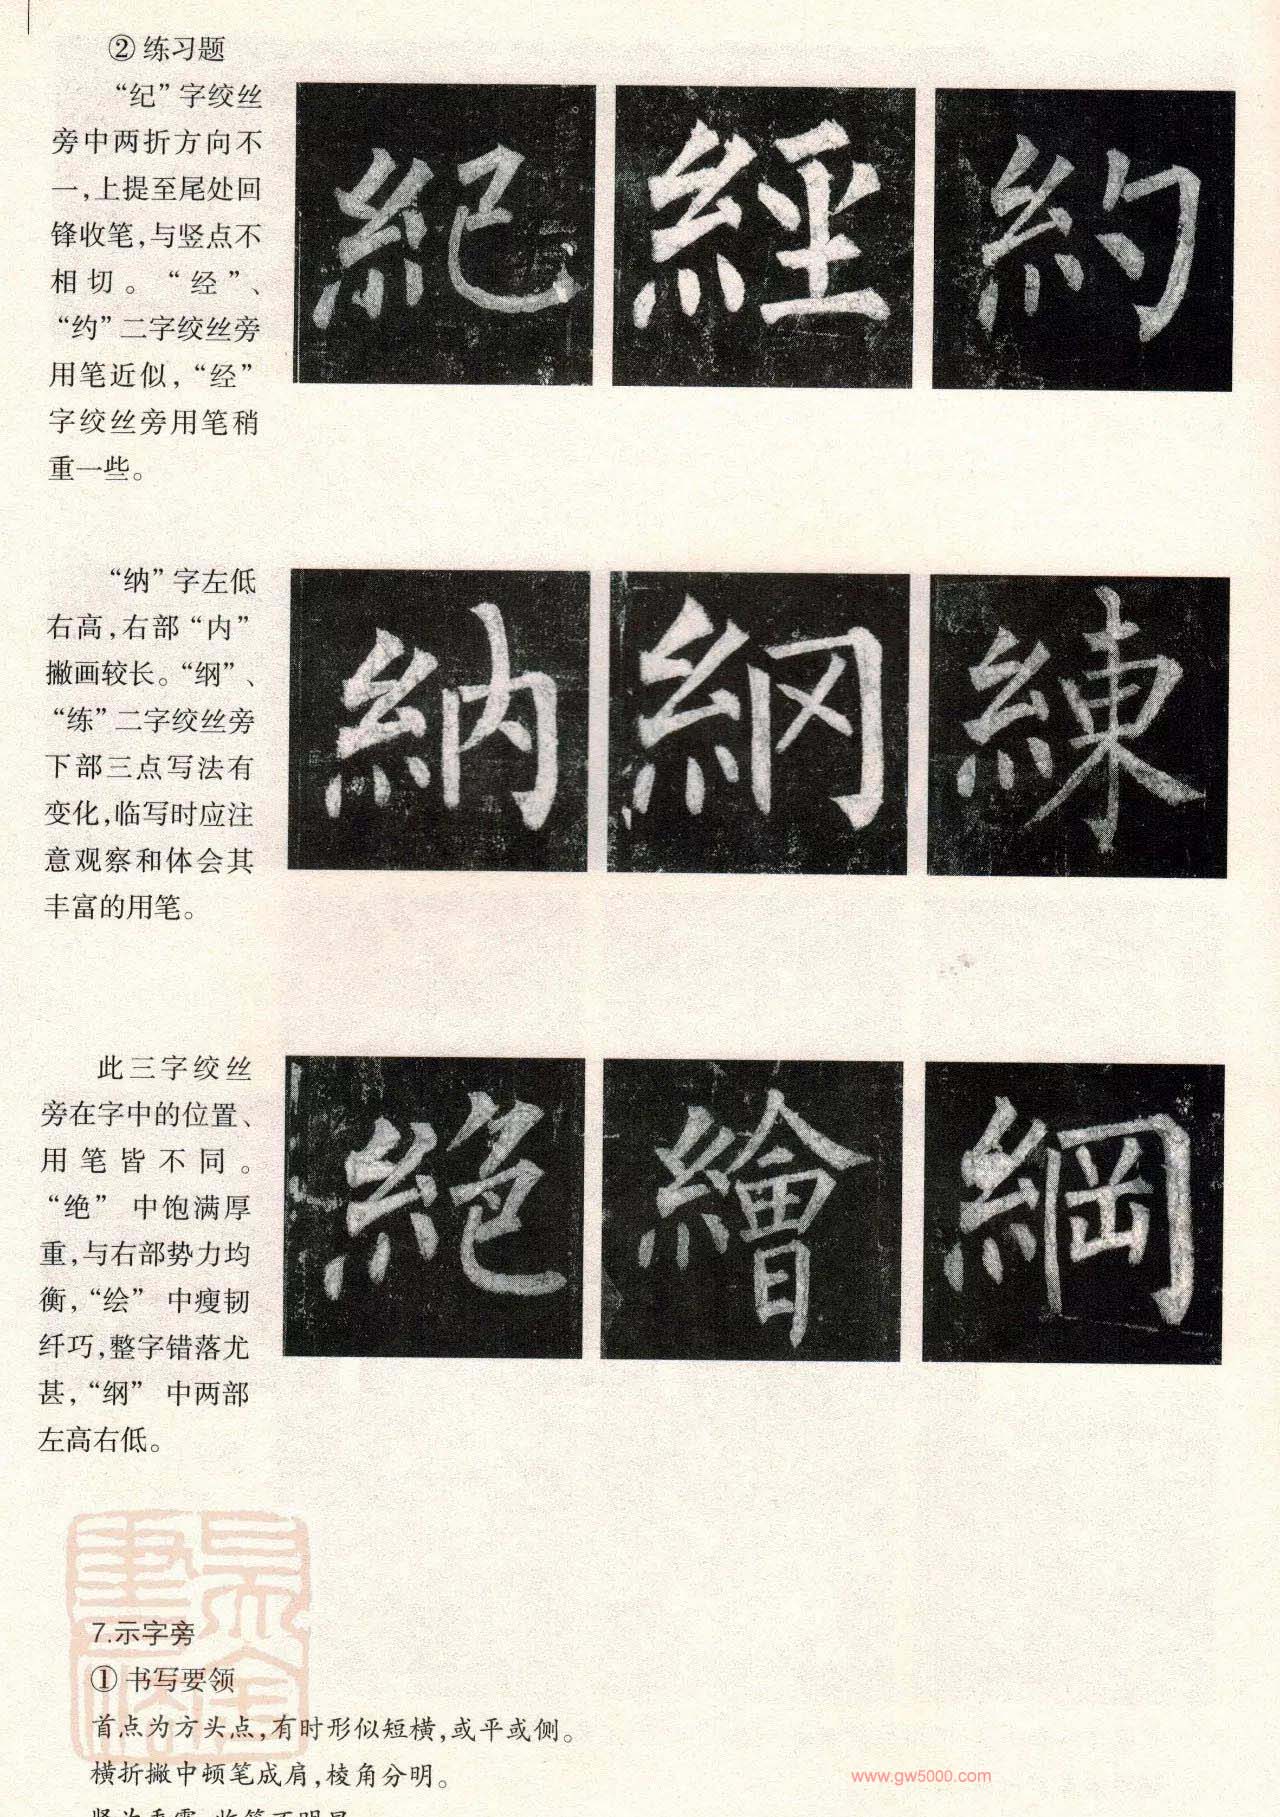 ② 练习题
“纪”字绞丝
旁中两折方向不
一,上提至尾处回
锋收笔,与竖点不
相切。“经”、
“约”二字绞丝旁
用笔近似,“经”
字绞丝旁用笔稍
重一些。
紀 經 約
“纳”字左低
右高,右部“内”
撇画较长。“纲”、
“练”二字绞丝旁
下部三点写法有
变化,临写时应注
意观察和体会其
丰富的用笔。
納 練
此三字绞丝
旁在字中的位置、
用笔皆不同。
“绝” 中饱满厚
重,与右部势力均
衡,“绘” 中瘦韧
纤巧,整字错落尤
甚,“纲” 中两部
左高右低。
絕 繪 綱
7.示字旁
① 书写要领
首点为方头点,有时形似短横,或平或侧。
横折撇中顿笔成肩,棱角分明。
www.gw5000.com